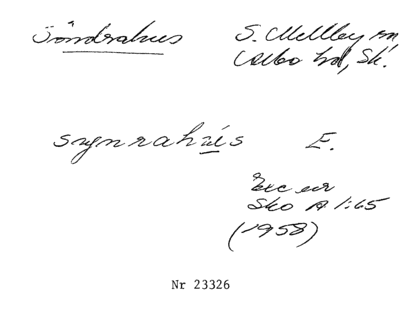 Söndrahus S. Mellby sn
Albo hd, Sk.
synrahus E.
Exc ur
Sko A 1:65
(1958)
Nr 23326